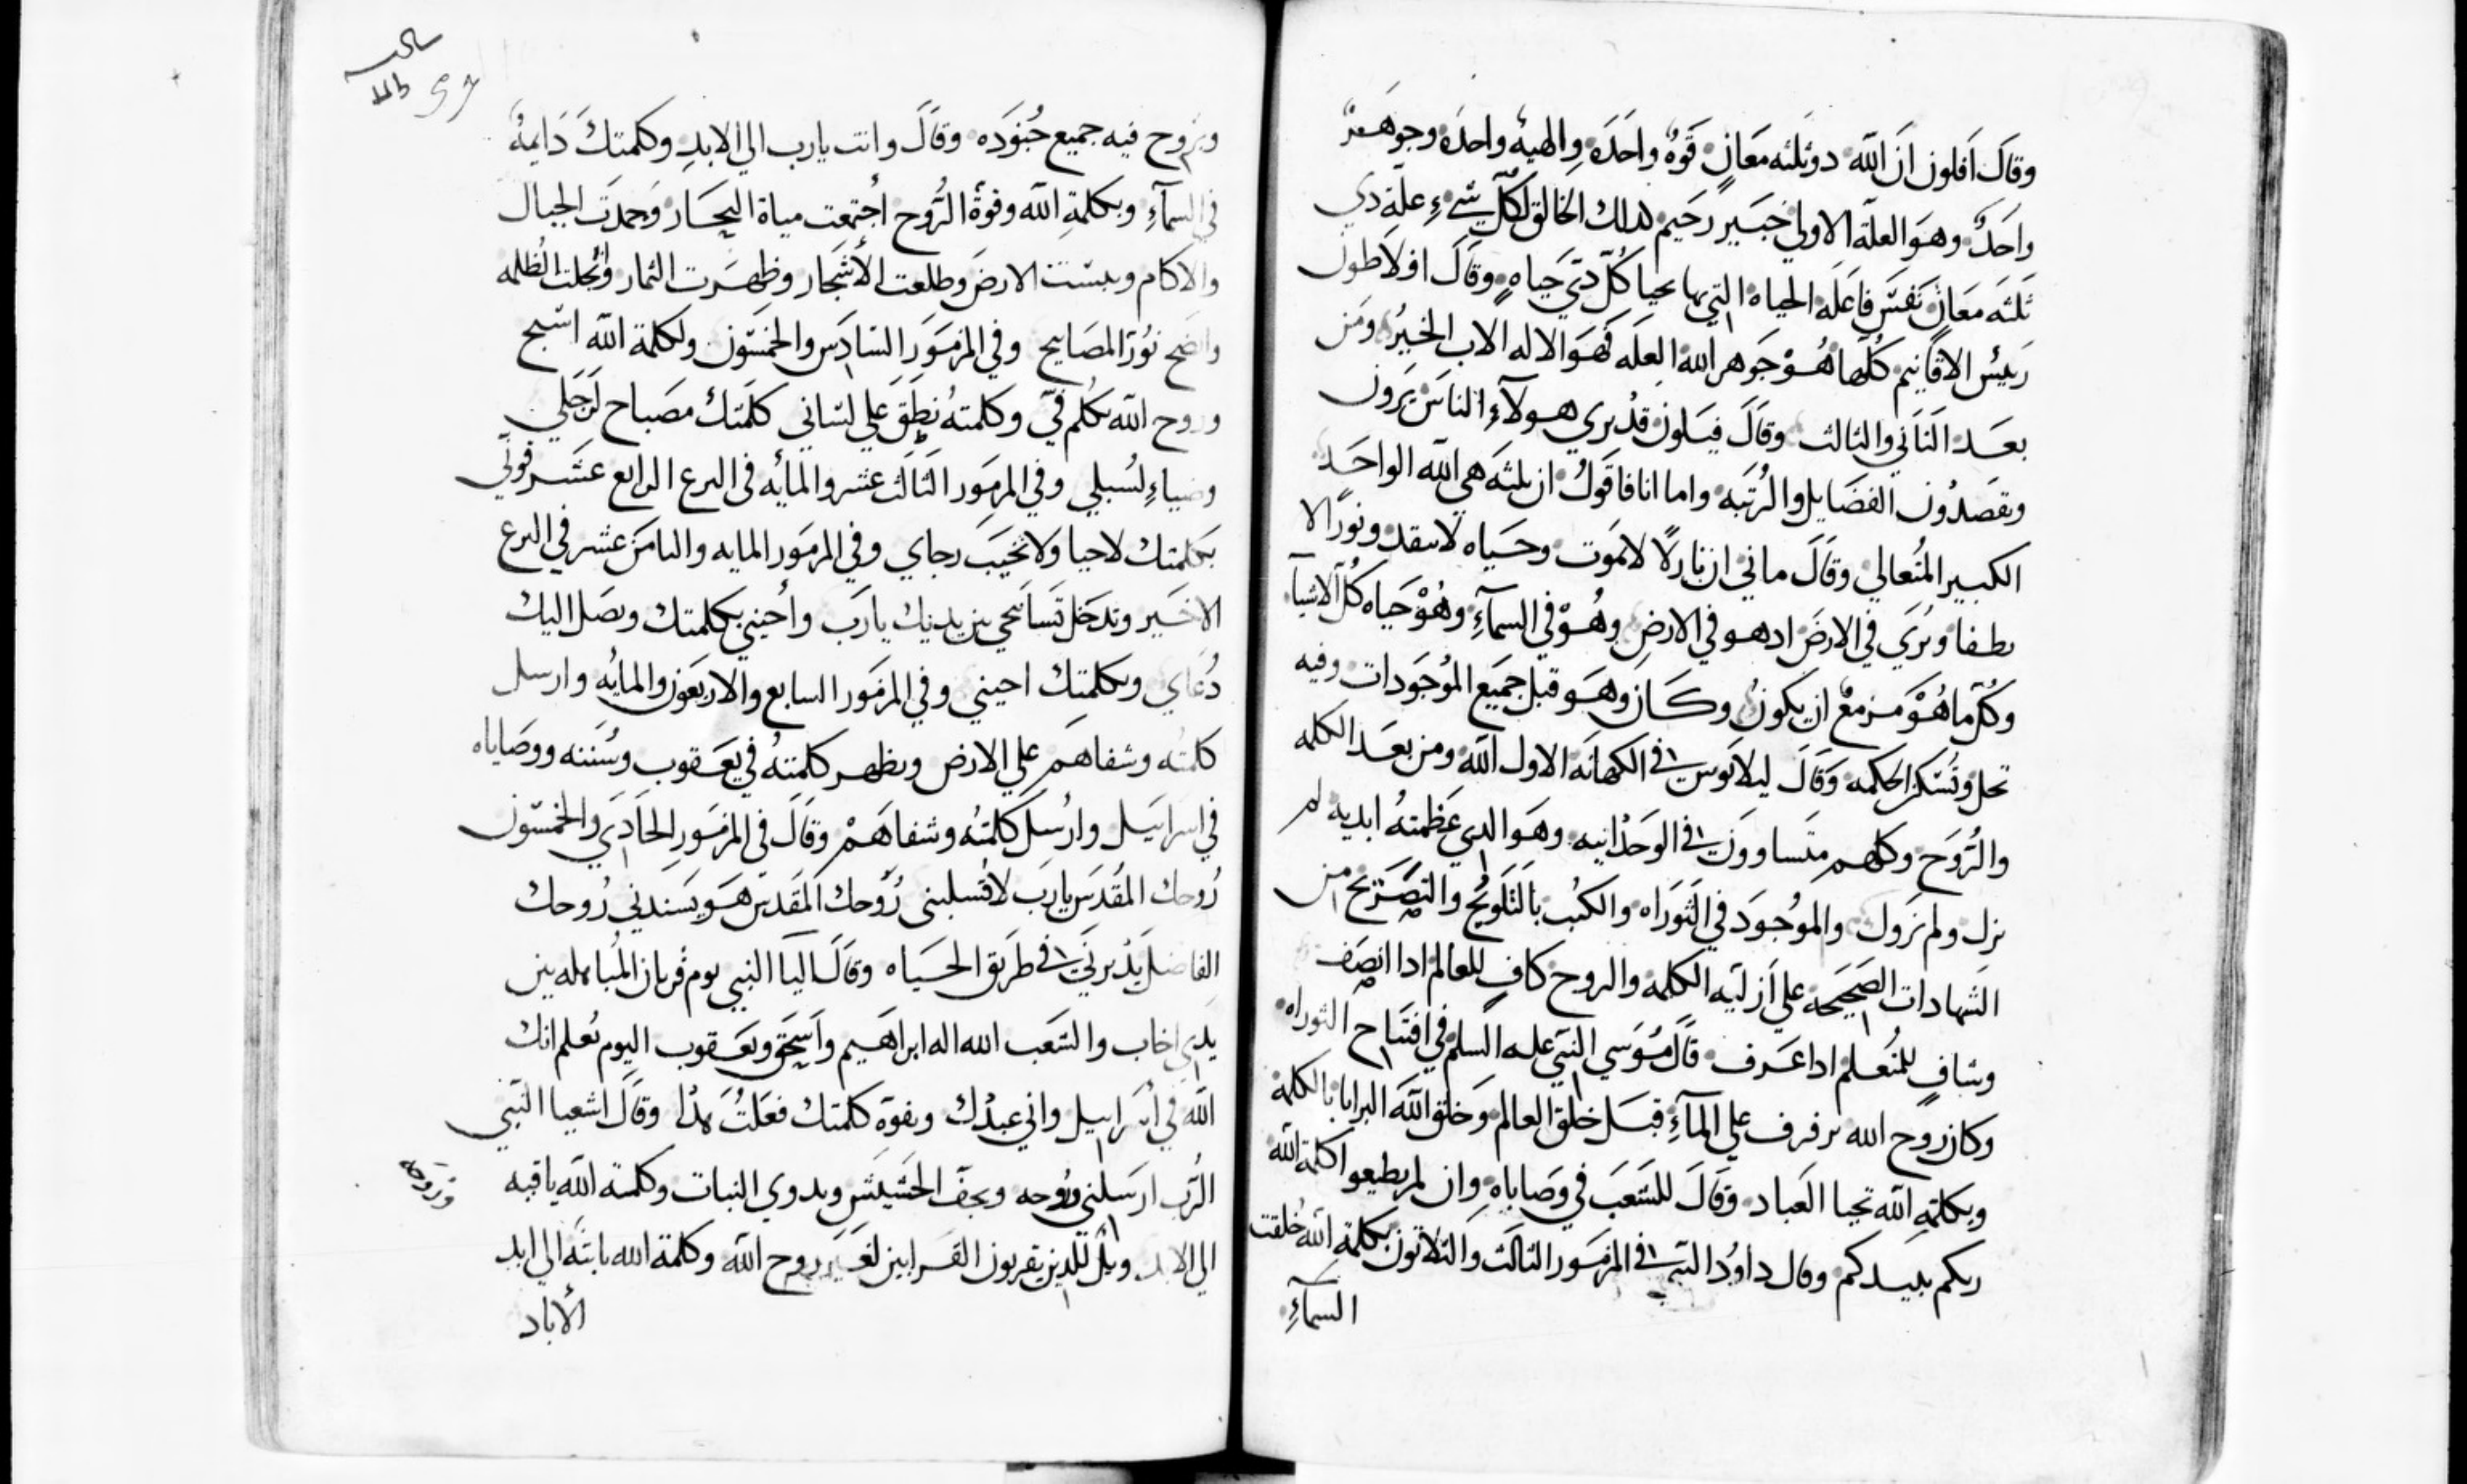 وقال افلون ان الله دو ثلثه معانٍ قوه واحده والهيه واحده وجوهر
واحد وهو العله الاولي خبير رحيم لدلك الخالق لكل شيء عله دي
ثلثه معانٍ نفس فاعله الحياه التي بها يحيا كل دي حياه وقال افلاطون
رييس الاقانيم كلها هو جوهر الله العله فهو الاله الاب الخير ومن
بعد الثاني والثالث وقال فيلون قد يري هولآء الناس يرون
ويقصدون الفضايل والرتبه واما انا فاقول ان ثلثه هي الله الواحد
الكبير المتعالي وقال ماني ان نارًا لا تموت وحياه لا تنفد ونورًا لا
يطفا ويري في الارض اد هو في الارض وهو في السمآء وهو حياه كل الاشيآ
وكل ما هو مزمع ان يكون وكان وهو قبل جميع الموجودات وفيه
تحل وتسكن الحكمه وقال ليلاوس في الكهانه الاول الله ومن بعد الكلمه
والروح وكلهم متساوون في الوحدانيه وهو الدي عظمته ابديه لم
يزل ولم يزول والموجود في الثوراه والكتب بالتلويح والتصريح من
الشهادات الصحيحه علي ازليه الكلمه والروح كافٍ للعالم ادا انصف
وشافٍ للمتعلم ادا عرف قال موسي النبي عليه السلم في افتتاح الثوراه
وكان روح الله يرفرف علي المآء قبل خلق العالم وخلق الله البرايا بالكلمة
وبكلمة الله تحيا العباد وقال للشعب في وصاياه وان لم يطيعوا كلمة الله
ربكم يبيدكم وقال داوود النبي في المزمور الثالث والثلاثون بكلمة الله خلقت
السمآء
وبروح فيه جميع جنوده وقال وانت يارب الي الابد وكلمتك دايمة
في السمآء وبكلمة الله وقوة الروح اجتمعت مياة البحار وجمدت الجبال
والاكام ويبست الارض وطلعت الأشجار وظهرت الثمار وانجلت الظلمه
واضح نور المصابيح وفي المزمور السادس والخمسون ولكلمة الله اسبح
وروح الله تكلم فيّ وكلمته نطق علي لساني كلمتك مصباح لرجلي
وضياء لسبلي وفي المزمور الثالث عشر والمأيه في البرع الرابع عشر قوني
بكلمتك لاحيا ولا تخيب رجاي وفي المزمور المايه والثامن عشر في البرع
الاخير وتدخل تسابيحي بين يديك يا رب وأحيني بكلمتك وتصل اليك
دعاي وبكلمتك احيني وفي المزمور السابع والاربعون والمايه وارسل
كلمته وشفاهم علي الارض ويظهر كلمته في يعقوب وسننه ووصاياه
في اسراييل وارسل كلمته وشفاهم وقال في المزمور الحادي والخمسون
روحك المقدس يا رب لا تسلبني روحك المقدس هو يسندني روحك
الفاضل يدبرني في طريق الحياه وقال اليا النبي يوم قربان المباهله بين
يدي اخاب والشعب الله اله ابراهيم واسحق ويعقوب اليوم تعلم انك
الله في أسراييل واني عبدك وبقوة كلمتك فعلت هدا وقال اشعيا النبي
الرب ارسلني وروحه ويجف الحشيش ويدوي النبات وكلمة الله باقيه
وبروحه
الي الابد ويل للدين يقربون القرابين لغير روح الله وكلمة الله ثابته الي ابد
الأباد